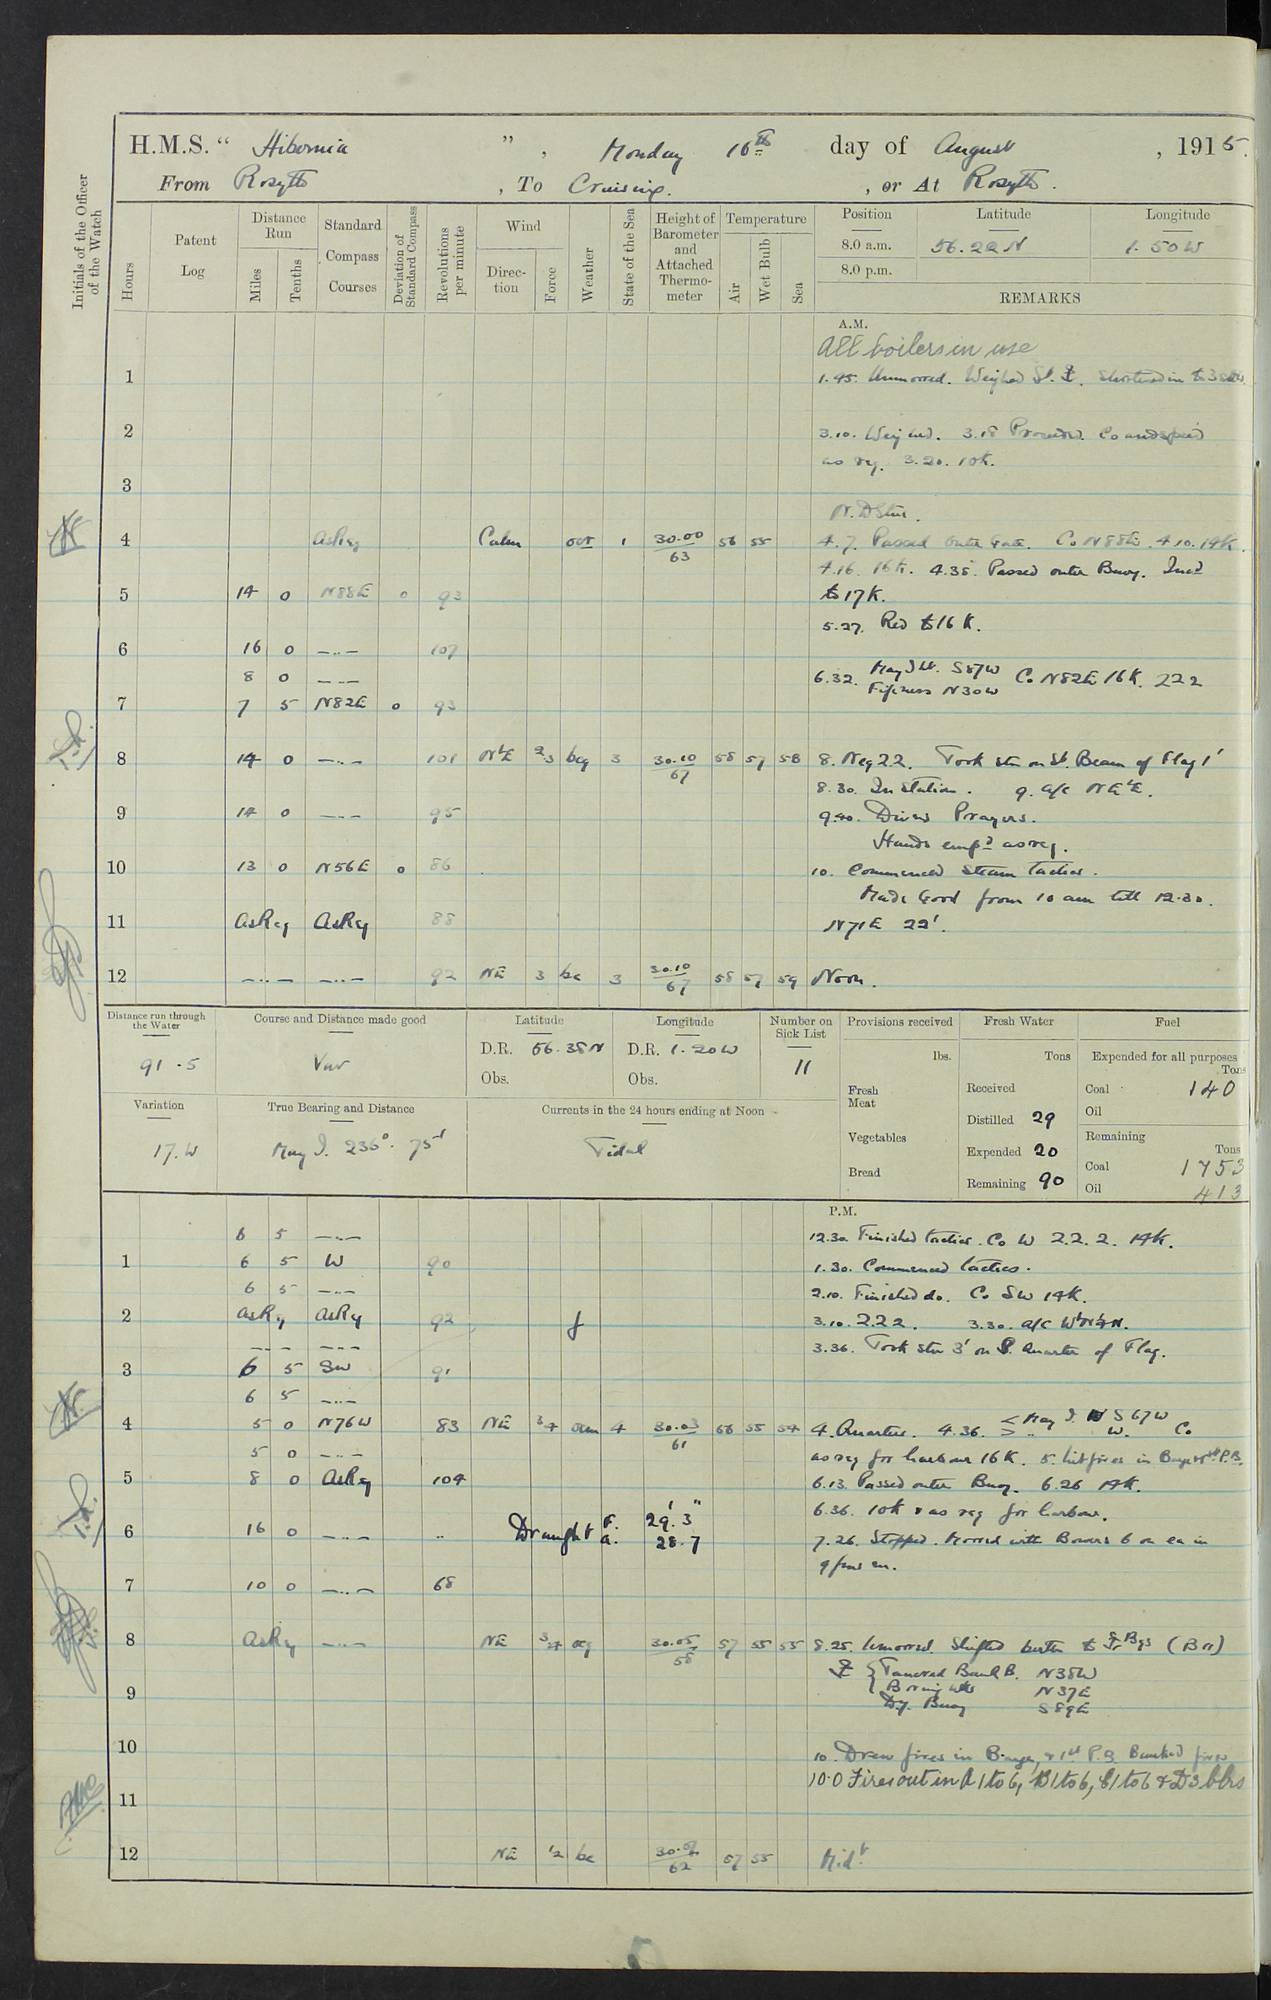 H.M.S. “ Hibernia ” , Monday 16th day of August , 1915.
From Rosyth , To Cruising. , or At Rosyth.
Initials of the Officer of the Watch
Hours
Patent Log
Distance Run
Miles
Tenths
Standard Compass Courses
Deviation of Standard Compass
Revolutions per minute
Wind
Direction
Force
Weather
State of the Sea
Height of Barometer and Attached Thermometer
Temperature
Air
Wet Bulb
Sea
Position
Latitude
Longitude
8.0 a.m. 56.22 N 1.50 W
8.0 p.m.
REMARKS
A.M.
All boilers in use
1 1.45. Unmoored. Weighed St. Shortened in to 3
2 3.10. Weighed. 3.18 Proceeded. Co and speed
as rq. 3.20. 10K.
3
N. D Stn.
4 AsReq Calm 1 30.00 63 56 55 4.7. Passed outer Gate. Co N88E. 4.10. 14K.
4.16. 16K. 4.35. Passed outer Buoy. Incd
5 14 0 N88E 0 93 to 17K.
5.27. Red to 16K.
6 16 0 —..— 107
8 0 —..— 6.32. May I Lt. S87W Fifeness N30W Co N82E 16K. 222
7 7 5 N82E 0 93
8 14 0 —..— 101 NbE 2/3 bcg 3 30.10 67 58 57 58 8. Neg 22. Took stn on St. Beam of Flag 1'
8.30. In Station. 9. a/c NEbE.
9 14 0 —..— 95 9.40. Divns Prayers.
Hands empd as req.
10 13 0 N56E 0 86 10. Commenced Steam tactics.
Made Good from 10 am till 12.30.
11 AsReq AsReq 88 N71E 22'.
12 —..— —..— 92 NE 3 bc 3 30.10 67 58 57 59 Noon.
Distance run through the Water
91.5
Course and Distance made good
Var
Latitude
D.R. 56.38 N
Obs.
Longitude
D.R. 1.20 W
Obs.
Number on Sick List
11
Provisions received
lbs.
Fresh Meat
Vegetables
Bread
Fresh Water
Tons
Received
Distilled 29
Expended 20
Remaining 90
Fuel
Expended for all purposes
Tons
Coal 140
Oil
Remaining
Tons
Coal 1753
Oil 413
Variation
17.W
True Bearing and Distance
May I. 236°. 75'
Currents in the 24 hours ending at Noon
Tidal
P.M.
6 5 —..— 12.30. Finished tactics. Co W 2.2.2. 14K.
1 6 5 W 90 1.30. Commenced tactics.
6 5 —..— 2.10. Finished do. Co SW 14K.
2 AsReq AsReq 92 f 3.10. 2.2.2. 3.30. a/c
—..— —..— 3.36. Took stn 3' on Quarter of Flag.
3 6 5 SW 91
6 5 —..—
4 5 0 N76W 83 NE 3/4 4 30.03 61 56 55 54 4. Quarters. 4.36. < May I. S67W > .. W. Co
5 0 —..— as req for harbour 16K. 5. Lit fires in P.B.
5 8 0 AsReq 104 6.13. Passed outer Buoy. 6.26 14K.
6.36. 10K & as req for harbour.
6 16 0 —..— .. Draught F. 29' 3" A. 28 7 7.26. Stopped. Moored with Bowers 6 on ea in
9 fms
7 10 0 —..— 68
8 AsReq —..— NE 3/4 og 30.05 58 57 55 55 8.25. Unmoored. Shifted berth to
Tancred Bank B. N38W
9 N37E
Dy. Buoy S89E
10 10. Drew fires in & 1st P.B. Banked fires
10.0 Fires out in A 1 to 6, B 1 to 6, C 1 to 6 & D3 blrs
11
12 NE 1/2 bc 62 57 55 Midt.